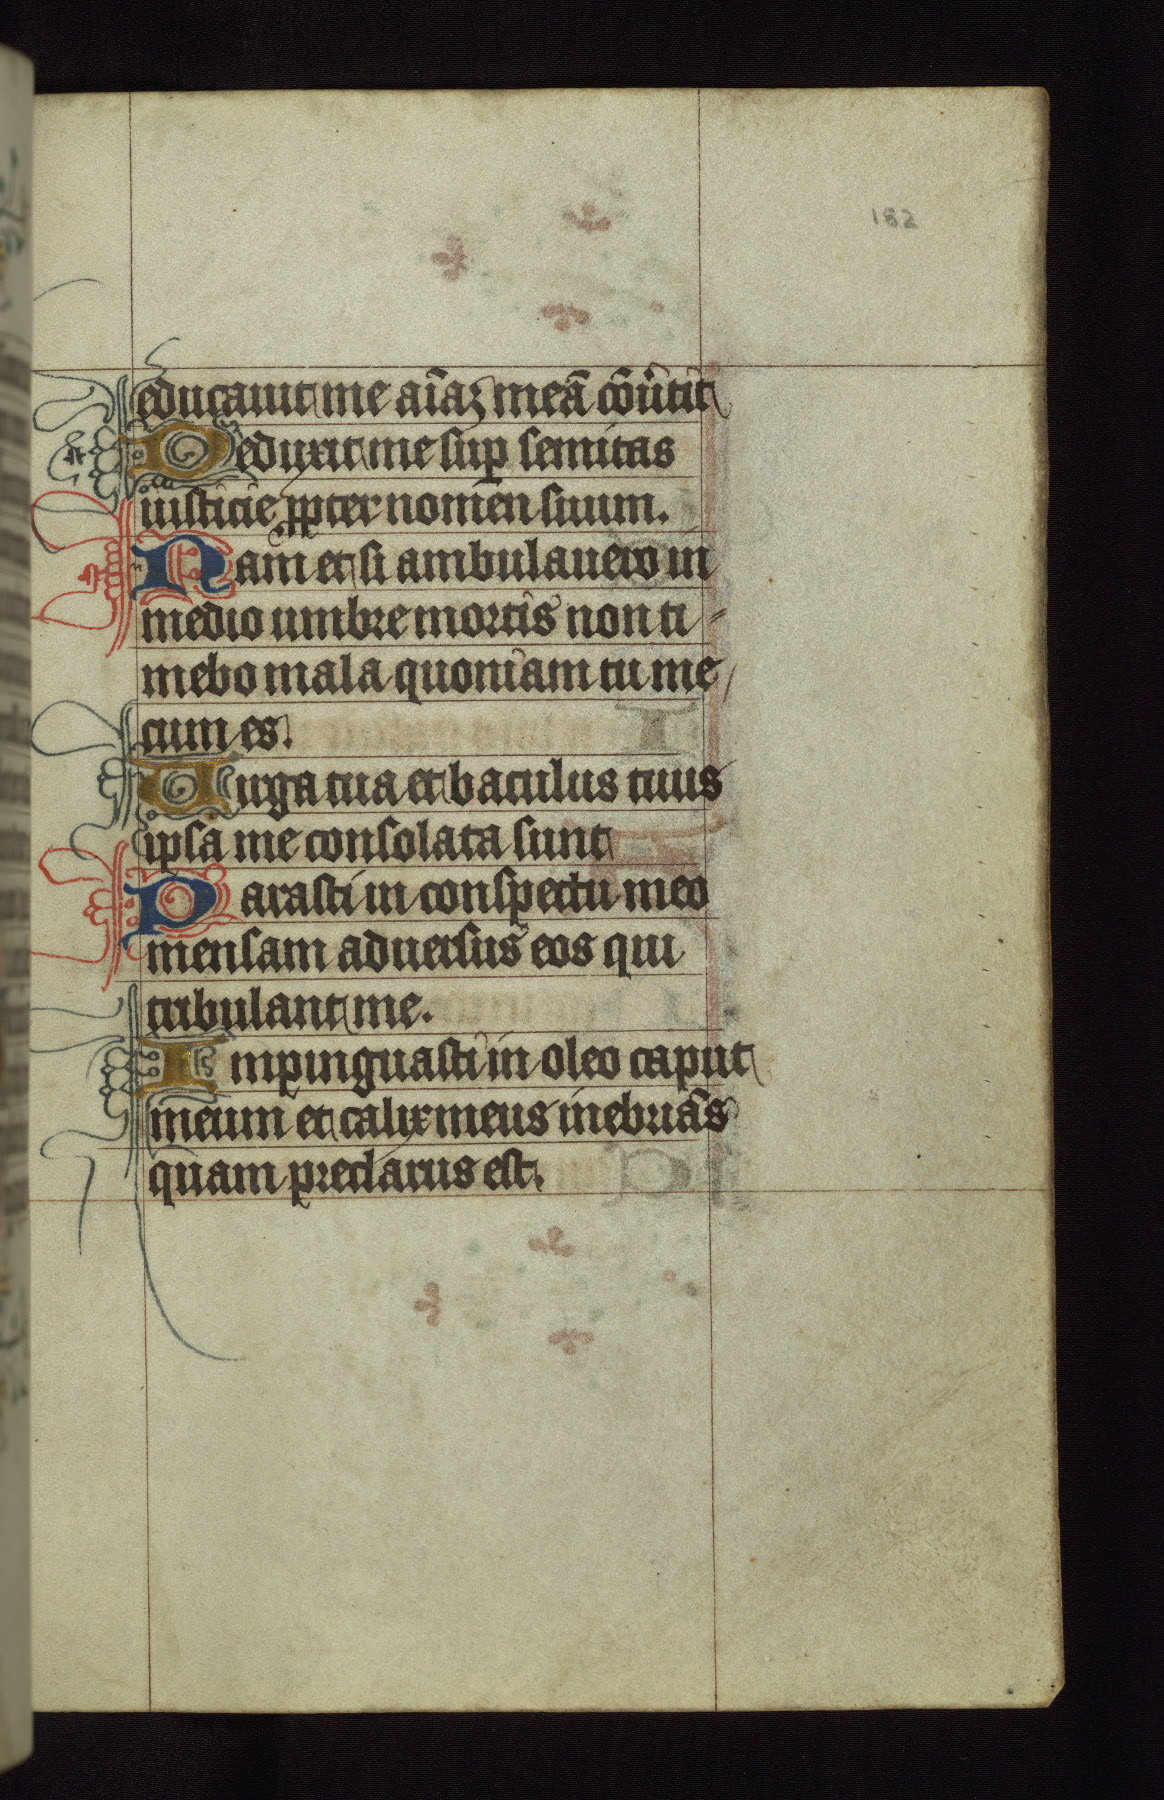 182
educauit me aīaꝫ meā cōūtit
Deduxit me suꝑ semitas
iusticie ꝓpter nomen suum.
Nam et si ambulauero in
medio umbre mortis non ti
mebo mala quoniam tu me
cum es.
Uirga tua et baculus tuus
ipsa me consolata sunt
Parasti in conspectu meo
mensam aduersus eos qui
tribulant me.
Inpinguasti in oleo caput
meum et calix meus inebrians
quam preclarus est.